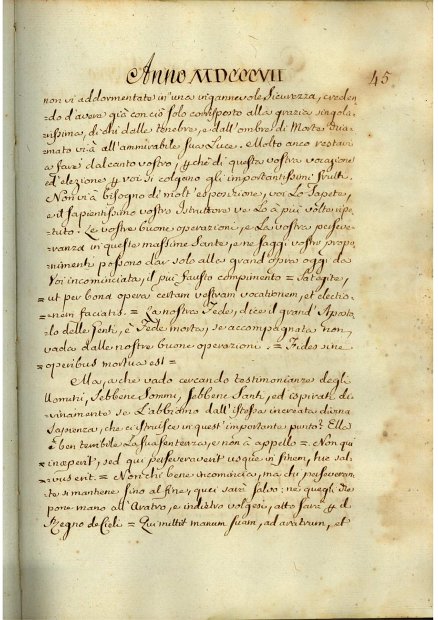 Anno MDCCCVII
45
non vi addormentate in una ingannevole Sicurezza, creden
do d'avere già con ciò solo corrisposto alla grazia singola
rissima, di chi dalle tenebre, e dall'ombre di Morte
mato vi à all'ammirabile sua Luce. Molto anco restavi
a fare dal canto vostro, che di questa vostra vocazione
ed elezione voi si colgano gli importantissimi frutti.
Non vi à bisogno di molt'esposizione, voi Lo Sapete,
e il sapientissimo vostro Istruttore ve Lo à più volte ripe-
tuto. Le vostre buone operazioni, e La vostra perseve-
ranza in queste massime Sante, e ne saggi vostri propo-
nimenti possono dar solo alla grand'opera oggi da
Voi incominciata, il più fausto compimento = Satagite,
= ut per bona opera certam vestram vocationem, et electio-
= nem faciatis. = La nostra Fede, dice il grand'Aposto-
lo delle Genti, è Fede morta, se accompagnata non
vada dalle nostre buone operazioni. = Fides sine
= operibus mortua est =
Ma, a che vado cercando testimonianze degli
Uomini, sebbene Sommi, sebbene Santi, ed ispirati di-
vinamente se L'abbiamo dall'istessa increata eterna
Sapienza, che ci istruisce in quest'importante punto? Ella
È ben terribile La sua sentenza, e non à appello =. Non qui
= inceperit, sed qui perseveraverit usque in finem, hic sal-
= vus erit. = Non chi bene incomincia, ma chi perseveran-
te si mantiene sino al fine, quei sarà salvo: nè quegli che
pone mano all'Aratro, e indietro volgesi, atto sarà il
Regno de Cieli = Qui mittit manum suam, ad aratrum, et